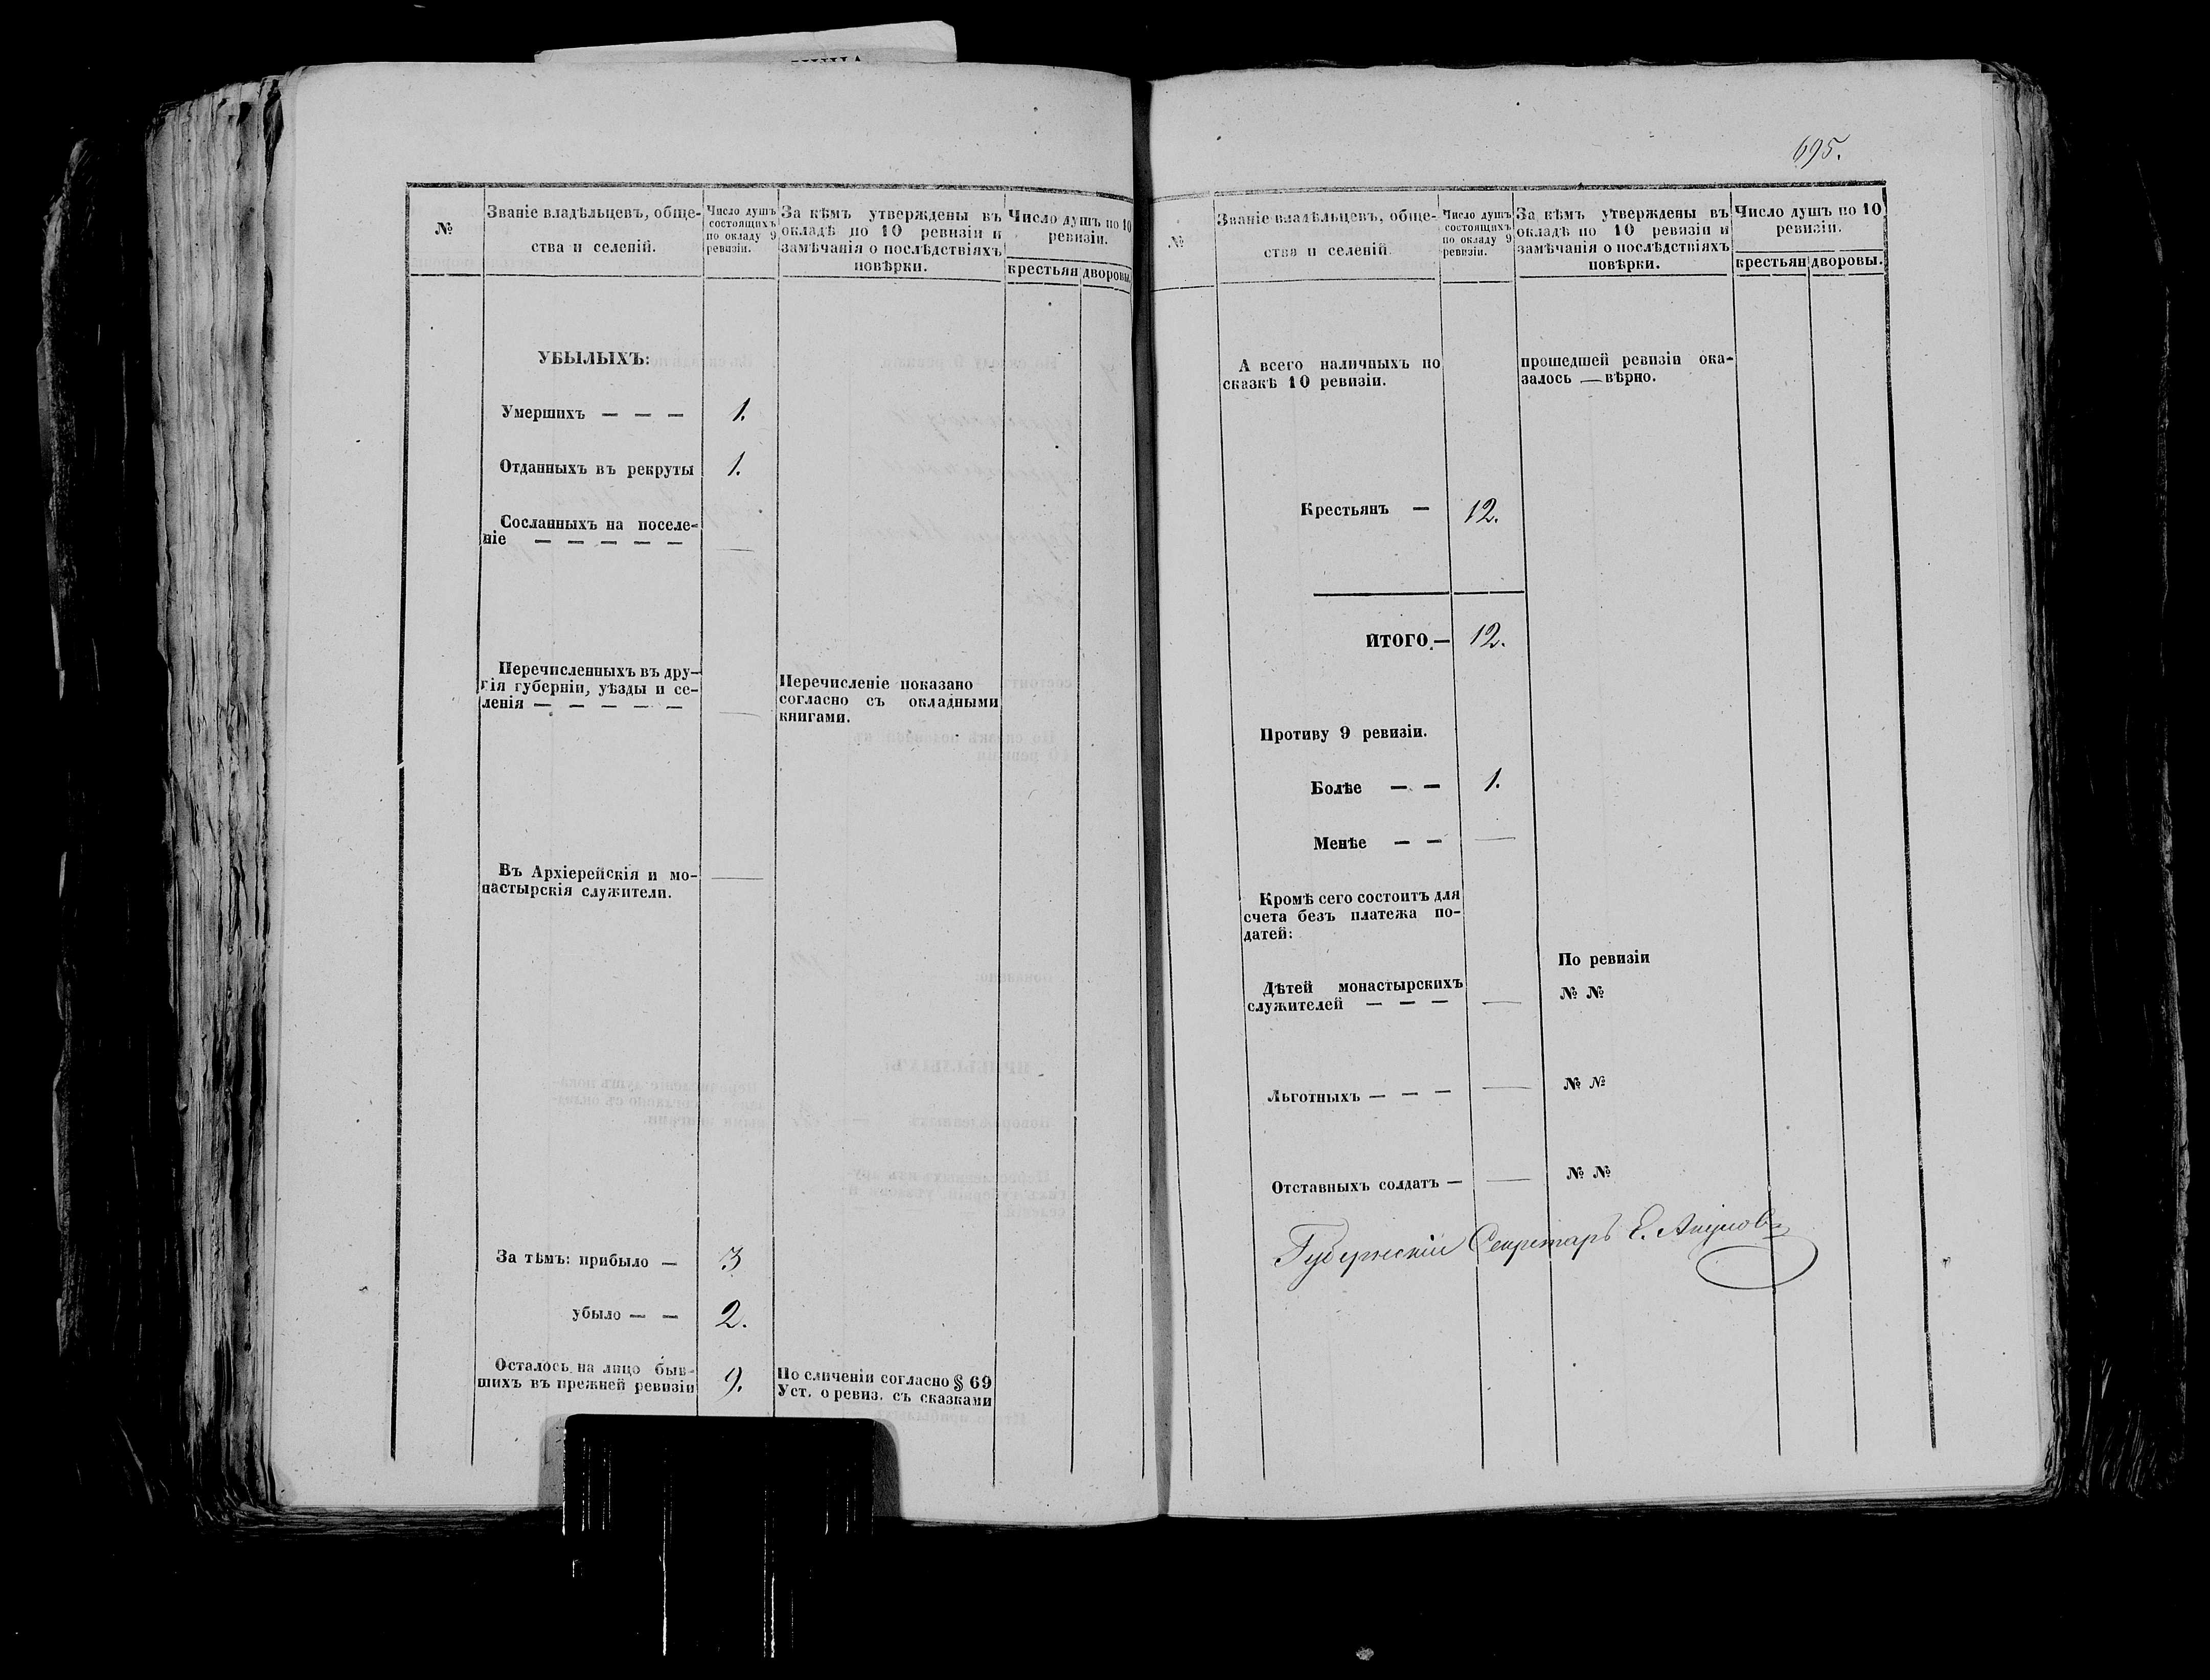 №
Званіе владѣльцевъ, обще-
ства и селеній.
Число душъ
состоящихъ
по окладу 9
ревизіи.
За кѣмъ утверждены въ
окладѣ по 10 ревизіи и
замѣчанія о послѣдствіяхъ
повѣрки.
Число душъ по 10
ревизіи.
крестьян
дворовы.
УБЫЛЫХЪ:
Умершихъ — — — 1.
Отданныхъ въ рекруты 1.
Сосланныхъ на поселе-
ніе — — — — — —
Перечисленныхъ въ дру-
гія губерніи, уѣзды и се-
ленія — — — — — —
Перечисленіе показано
согласно съ окладными
книгами.
Въ Архіерейскія и мо- —
настырскія служители.
За тѣмъ: прибыло — 3
убыло — — 2.
Осталось на лицо быв-
шихъ въ прежней ревизіи 9.
По сличеніи согласно § 69
Уст. о ревиз. съ сказками
695.
№
Званіе владѣльцевъ, обще-
ства и селеній.
Число душъ
состоящихъ
по окладу 9
ревизіи.
За кѣмъ утверждены въ
окладѣ по 10 ревизіи и
замѣчанія о послѣдствіяхъ
повѣрки.
Число душъ по 10
ревизіи.
крестьян
дворовы.
А всего наличныхъ по
сказкѣ 10 ревизіи.
прошедшей ревизіи ока-
залось — вѣрно.
Крестьянъ — 12.
ИТОГО.— 12.
Противу 9 ревизіи.
Болѣе — — 1.
Менѣе — — —
Кромѣ сего состоитъ для
счета безъ платежа по-
датей:
По ревизіи
Дѣтей монастырскихъ
служителей — — — —
№ №
Льготныхъ — — — — № №
Отставныхъ солдатъ — — № №
Губернскій Секретарь Е. Акуловъ